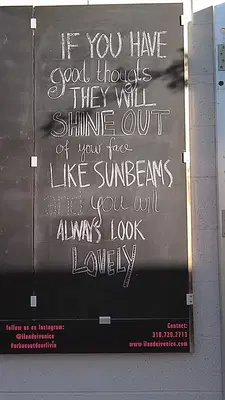 IF YOU HAVE
good thougts
THEY WILL
SHINE OUT
of your face
LIKE SUNBEAMS
and you will
ALWAYS LOOK
LOVELY
follow us on Instagram:
@ilandeivenice
#urbanoutdoorlivin
Contact:
310.729.2713
www.ilandeivenice.com